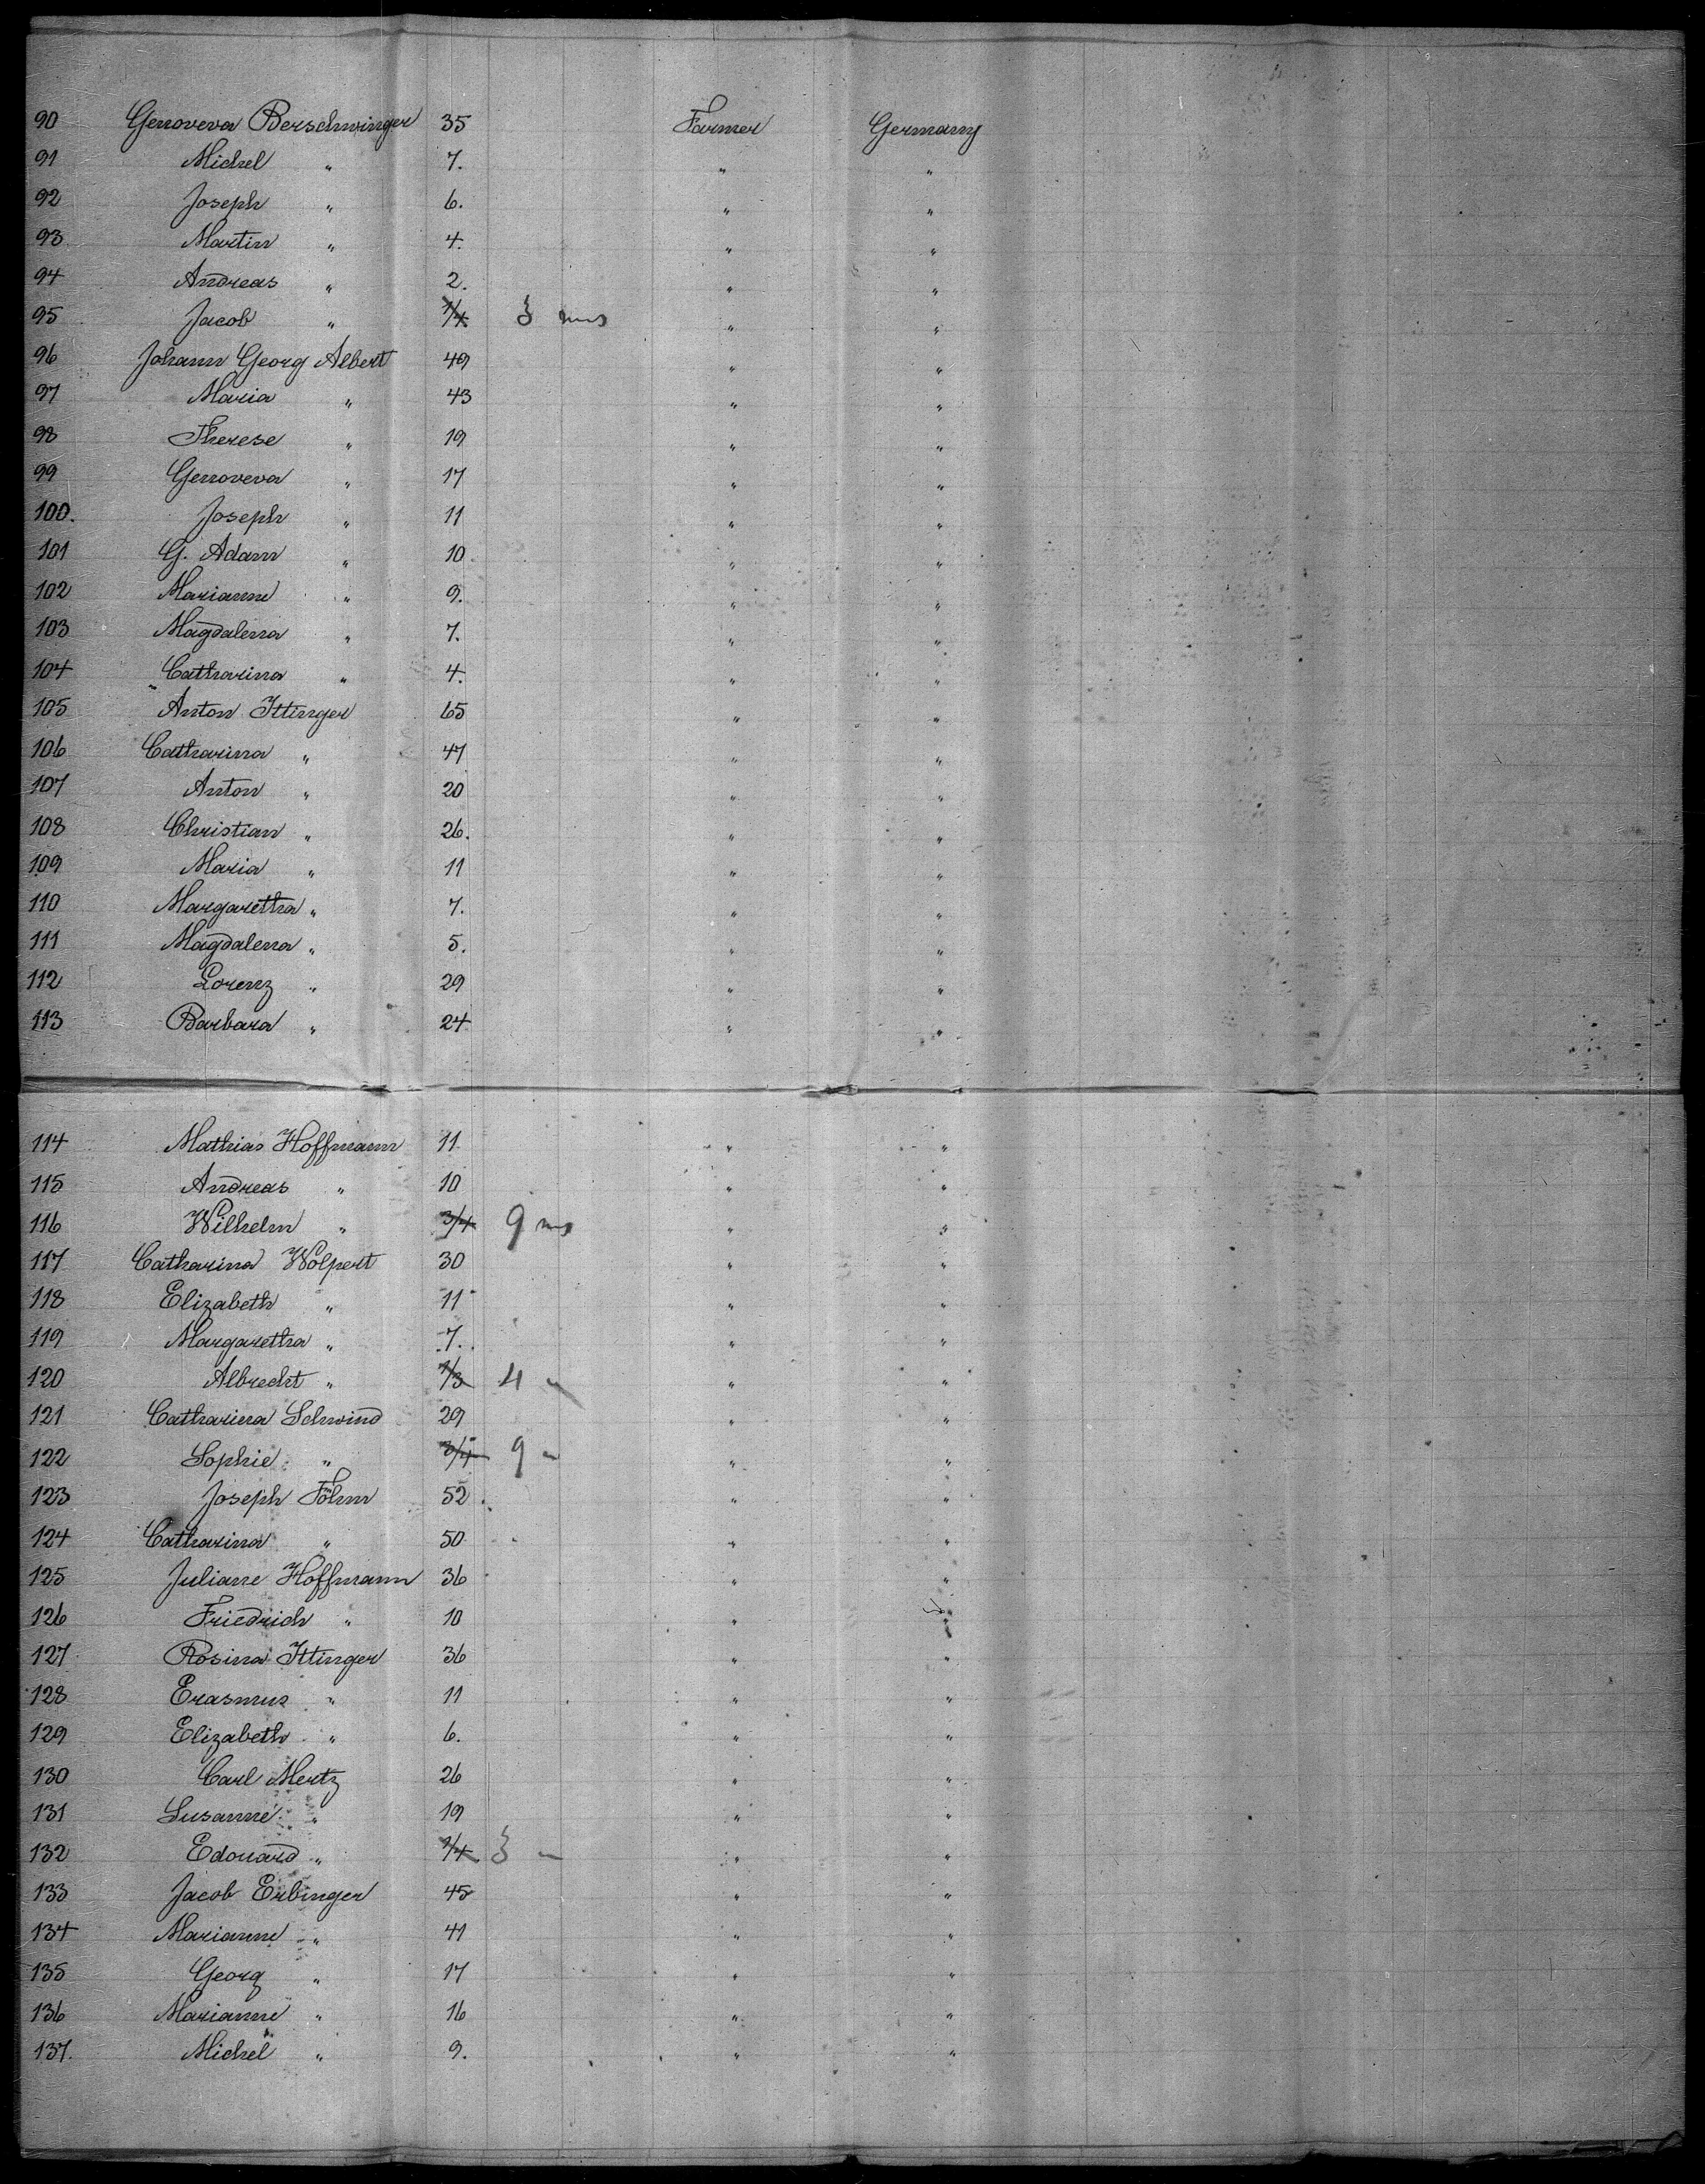 90 Genoveva Berschwinger 35 Farmer Germany
91 Michel " 7. " "
92 Joseph " 6. " "
93 Martin " 4. " "
94 Andreas " 2. " "
95 Jacob " 1/4 3 ms " "
96 Johann Georg Albert 49 " "
97 Maria " 43 " "
98 Therese " 19 " "
99 Genoveva " 17 " "
100. Joseph " 11 " "
101 G. Adam " 10 " "
102 Marianne " 9. " "
103 Magdalena " 7. " "
104 Catharina " 4. " "
105 Anton Ittinger 65 " "
106 Catharina " 47 " "
107 Anton " 20 " "
108 Christian " 26. " "
109 Maria " 11 " "
110 Margaretha " 7. " "
111 Magdalena " 5. " "
112 Lorenz " 29 " "
113 Barbara " 24 " "
114 Mathias Hoffmann 11 " "
115 Andreas " 10 " "
116 Wilhelm " 3/4 9 ms " "
117 Catharina Wolpert 30 " "
118 Elizabeth " 11 " "
119 Margaretha " 7. " "
120 Albrecht " 1/3 4 " " "
121 Catharina Schwind 29 " "
122 Sophie " 3/4 9 " " "
123 Joseph Föhm 52 " "
124 Catharina " 50 " "
125 Juliane Hoffmann 36 " "
126 Friedrich " 10 " "
127 Rosina Ittinger 36 " "
128 Erasmus " 11 " "
129 Elizabeth " 6. " "
130 Carl Mertz 26 " "
131 Susanne " 19 " "
132 Edouard " 1/4 3 " " "
133 Jacob Erbinger 45 " "
134 Marianne " 41 " "
135 Georg " 17 " "
136 Marianne " 16 " "
137. Michel " 9. " "